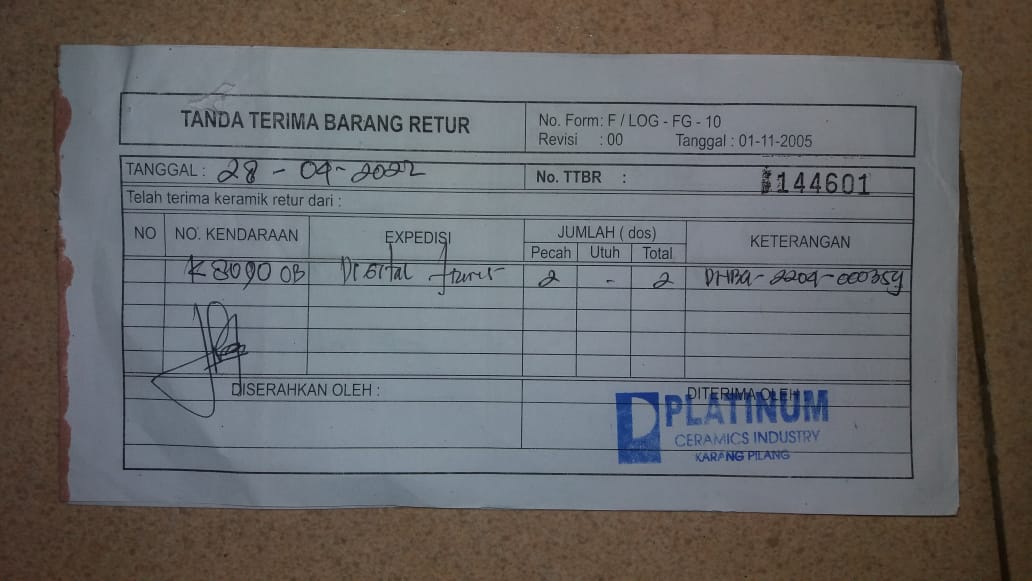 TANDA TERIMA BARANG RETUR
No. Form: F / LOG - FG - 10
Revisi : 00 Tanggal : 01-11-2005
TANGGAL : 28 - 09 - 2022
No. TTBR : 144601
Telah terima keramik retur dari :
NO NO. KENDARAAN EXPEDISI JUMLAH ( dos) KETERANGAN
Pecah Utuh Total
K 8090 OB Digital 2 - 2 DHBA - 2209 - 000359
DISERAHKAN OLEH : DITERIMA OLEH
PLATINUM
CERAMICS INDUSTRY
KARANG PILANG